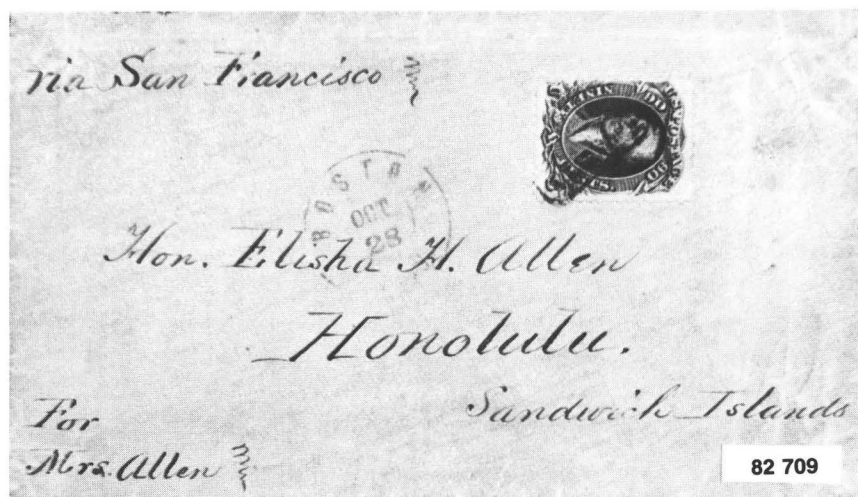 via San Francisco
U.S. POSTAGE
BOSTON
OCT
28
Hon. Elisha H. Allen
Honolulu.
Sandwich Islands
For
Mrs. Allen
82 709